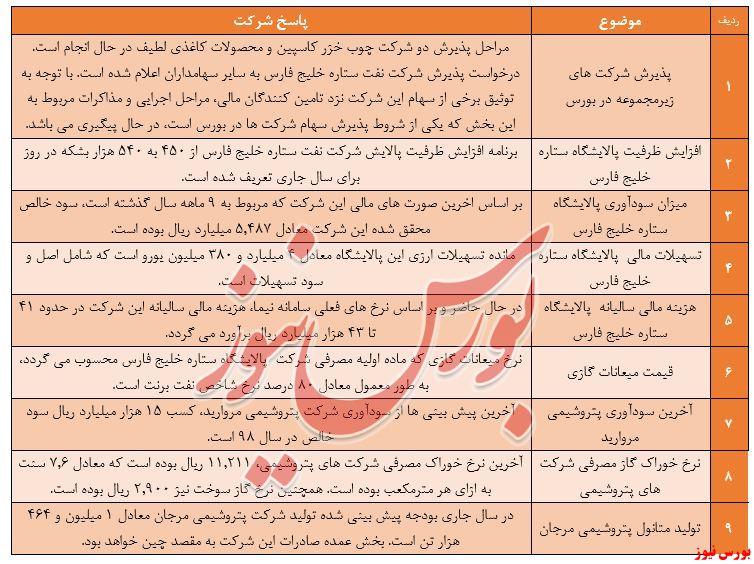 ردیف موضوع پاسخ شرکت
۱ پذیرش شرکت های زیرمجموعه در بورس
مراحل پذیرش دو شرکت چوب خزر کاسپین و محصولات کاغذی لطیف در حال انجام است.
درخواست پذیرش شرکت نفت ستاره خلیج فارس به سایر سهامداران اعلام شده است. با توجه به
توثیق برخی از سهام این شرکت نزد تامین کنندگان مالی، مراحل اجرایی و مذاکرات مربوط به
این بخش که یکی از شروط پذیرش سهام شرکت ها در بورس است، در حال پیگیری می باشد.
۲ افزایش ظرفیت پالایشگاه ستاره خلیج فارس
برنامه افزایش ظرفیت پالایش شرکت نفت ستاره خلیج فارس از ۴۵۰ به ۵۴۰ هزار بشکه در روز
برای سال جاری تعریف شده است.
۳ میزان سودآوری پالایشگاه ستاره خلیج فارس
بر اساس اخرین صورت های مالی این شرکت که مربوط به ۹ ماهه سال گذشته است، سود خالص
محقق شده این شرکت معادل ۵,۴۸۷ میلیارد ریال بوده است.
۴ تسهیلات مالی پالایشگاه ستاره خلیج فارس
مانده تسهیلات ارزی این پالایشگاه معادل میلیارد و ۳۸۰ میلیون یورو است که شامل اصل و
سود تسهیلات است.
۵ هزینه مالی سالیانه پالایشگاه ستاره خلیج فارس
در حال حاضر و بر اساس نرخ های فعلی سامانه نیما، هزینه مالی سالیانه این شرکت در حدود ۴۱
تا ۴۳ هزار میلیارد ریال برآورد می گردد.
۶ قیمت میعانات گازی
نرخ میعانات گازی که ماده اولیه مصرفی شرکت پالایشگاه ستاره خلیج فارس محسوب می گردد،
به طور معمول معادل ۸۰ درصد نرخ شاخص نفت برنت است.
۷ آخرین سودآوری پتروشیمی مروارید
آخرین پیش بینی ها از سودآوری شرکت پتروشیمی مروارید، کسب ۱۵ هزار میلیارد ریال سود
خالص در سال ۹۸ است.
۸ نرخ خوراک گاز مصرفی شرکت های پتروشیمی
آخرین نرخ خوراک مصرفی شرکت های پتروشیمی، ۱۱,۲۱۱ ریال بوده است که معادل ۷,۶ سنت
به ازای هر مترمکعب بوده است. همچنین نرخ گاز سوخت نیز ۲,۹۰۰ ریال بوده است.
۹ تولید متانول پتروشیمی مرجان
در سال جاری بودجه پیش بینی شده تولید شرکت پتروشیمی مرجان معادل ۱ میلیون و ۴۶۴
هزار تن است. بخش عمده صادرات این شرکت به مقصد چین خواهد بود.
بورس نیوز
بورس نیوز